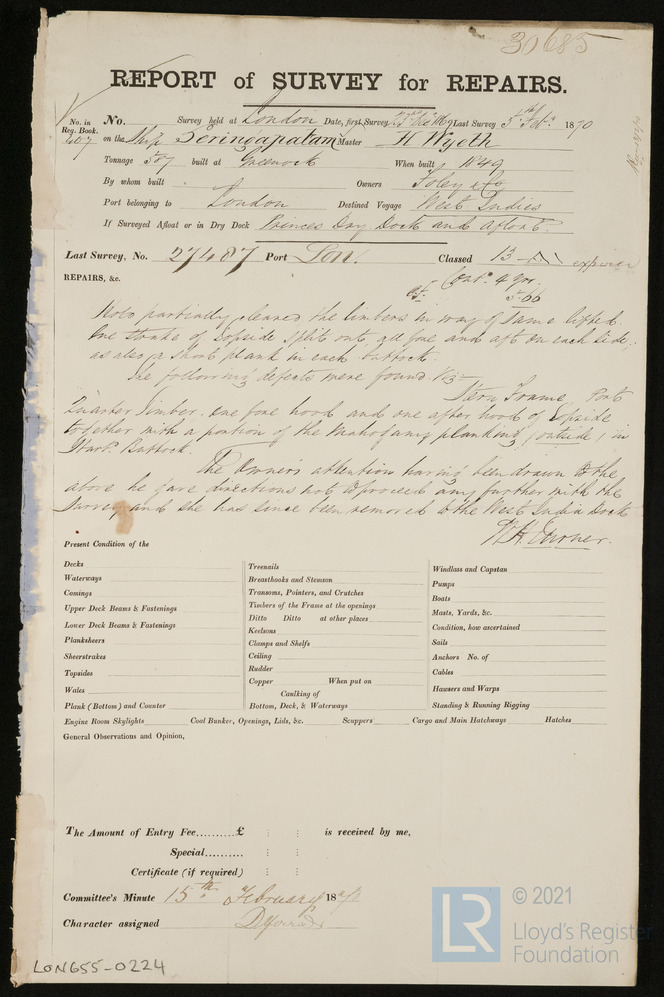 30685
REPORT of SURVEY for REPAIRS.
No. in Reg. Book. No. Survey held at London Date, first Survey Last Survey 5th Feby 1870
407 on the Ship Seringapatam Master H Wyeth
Tonnage 587 built at Greenock When built 1849
By whom built Owners Foley & Co
Port belonging to London Destined Voyage West Indies
If Surveyed Afloat or in Dry Dock Princes Dry Dock and afloat
Last Survey, No. 27487 Port Lon. Classed 13
Cont. 4 yrs
REPAIRS, &c. 5.66
Hold partially cleared the limbers in way of same lifted.
One strake of Topside split out all fore and aft on each side,
as also a short plank in each buttock.
The following defects were found Viz
Stern Frame, Port
Quarter timber. One fore hood and one after hood of Topside
together with a portion of the Mahogany planking (outside) in
Starb. Buttock.
The Owner's attention having been drawn to the
above he gave directions not to proceed any further with the
Survey and she has since been removed to the West India Dock
W. H. Turner.
Present Condition of the
Decks
Waterways
Comings
Upper Deck Beams & Fastenings
Lower Deck Beams & Fastenings
Planksheers
Sheerstrakes
Topsides
Wales
Plank (Bottom) and Counter
Treenails
Breasthooks and Stemson
Transoms, Pointers, and Crutches
Timbers of the Frame at the openings
Ditto Ditto at other places
Keelsons
Clamps and Shelfs
Ceiling
Rudder
Copper When put on
Caulking of
Bottom, Deck, & Waterways
Windlass and Capstan
Pumps
Boats
Masts, Yards, &c.
Condition, how ascertained
Sails
Anchors No. of
Cables
Hawsers and Warps
Standing & Running Rigging
Engine Room Skylights Coal Bunker, Openings, Lids, &c. Scuppers Cargo and Main Hatchways Hatches
General Observations and Opinion,
The Amount of Entry Fee..........£ : : is received by me,
Special.......... : :
Certificate (if required) : :
Committee's Minute 15th February 18
Character assigned
LON655-0224
LR
© 2021
Lloyd's Register
Foundation